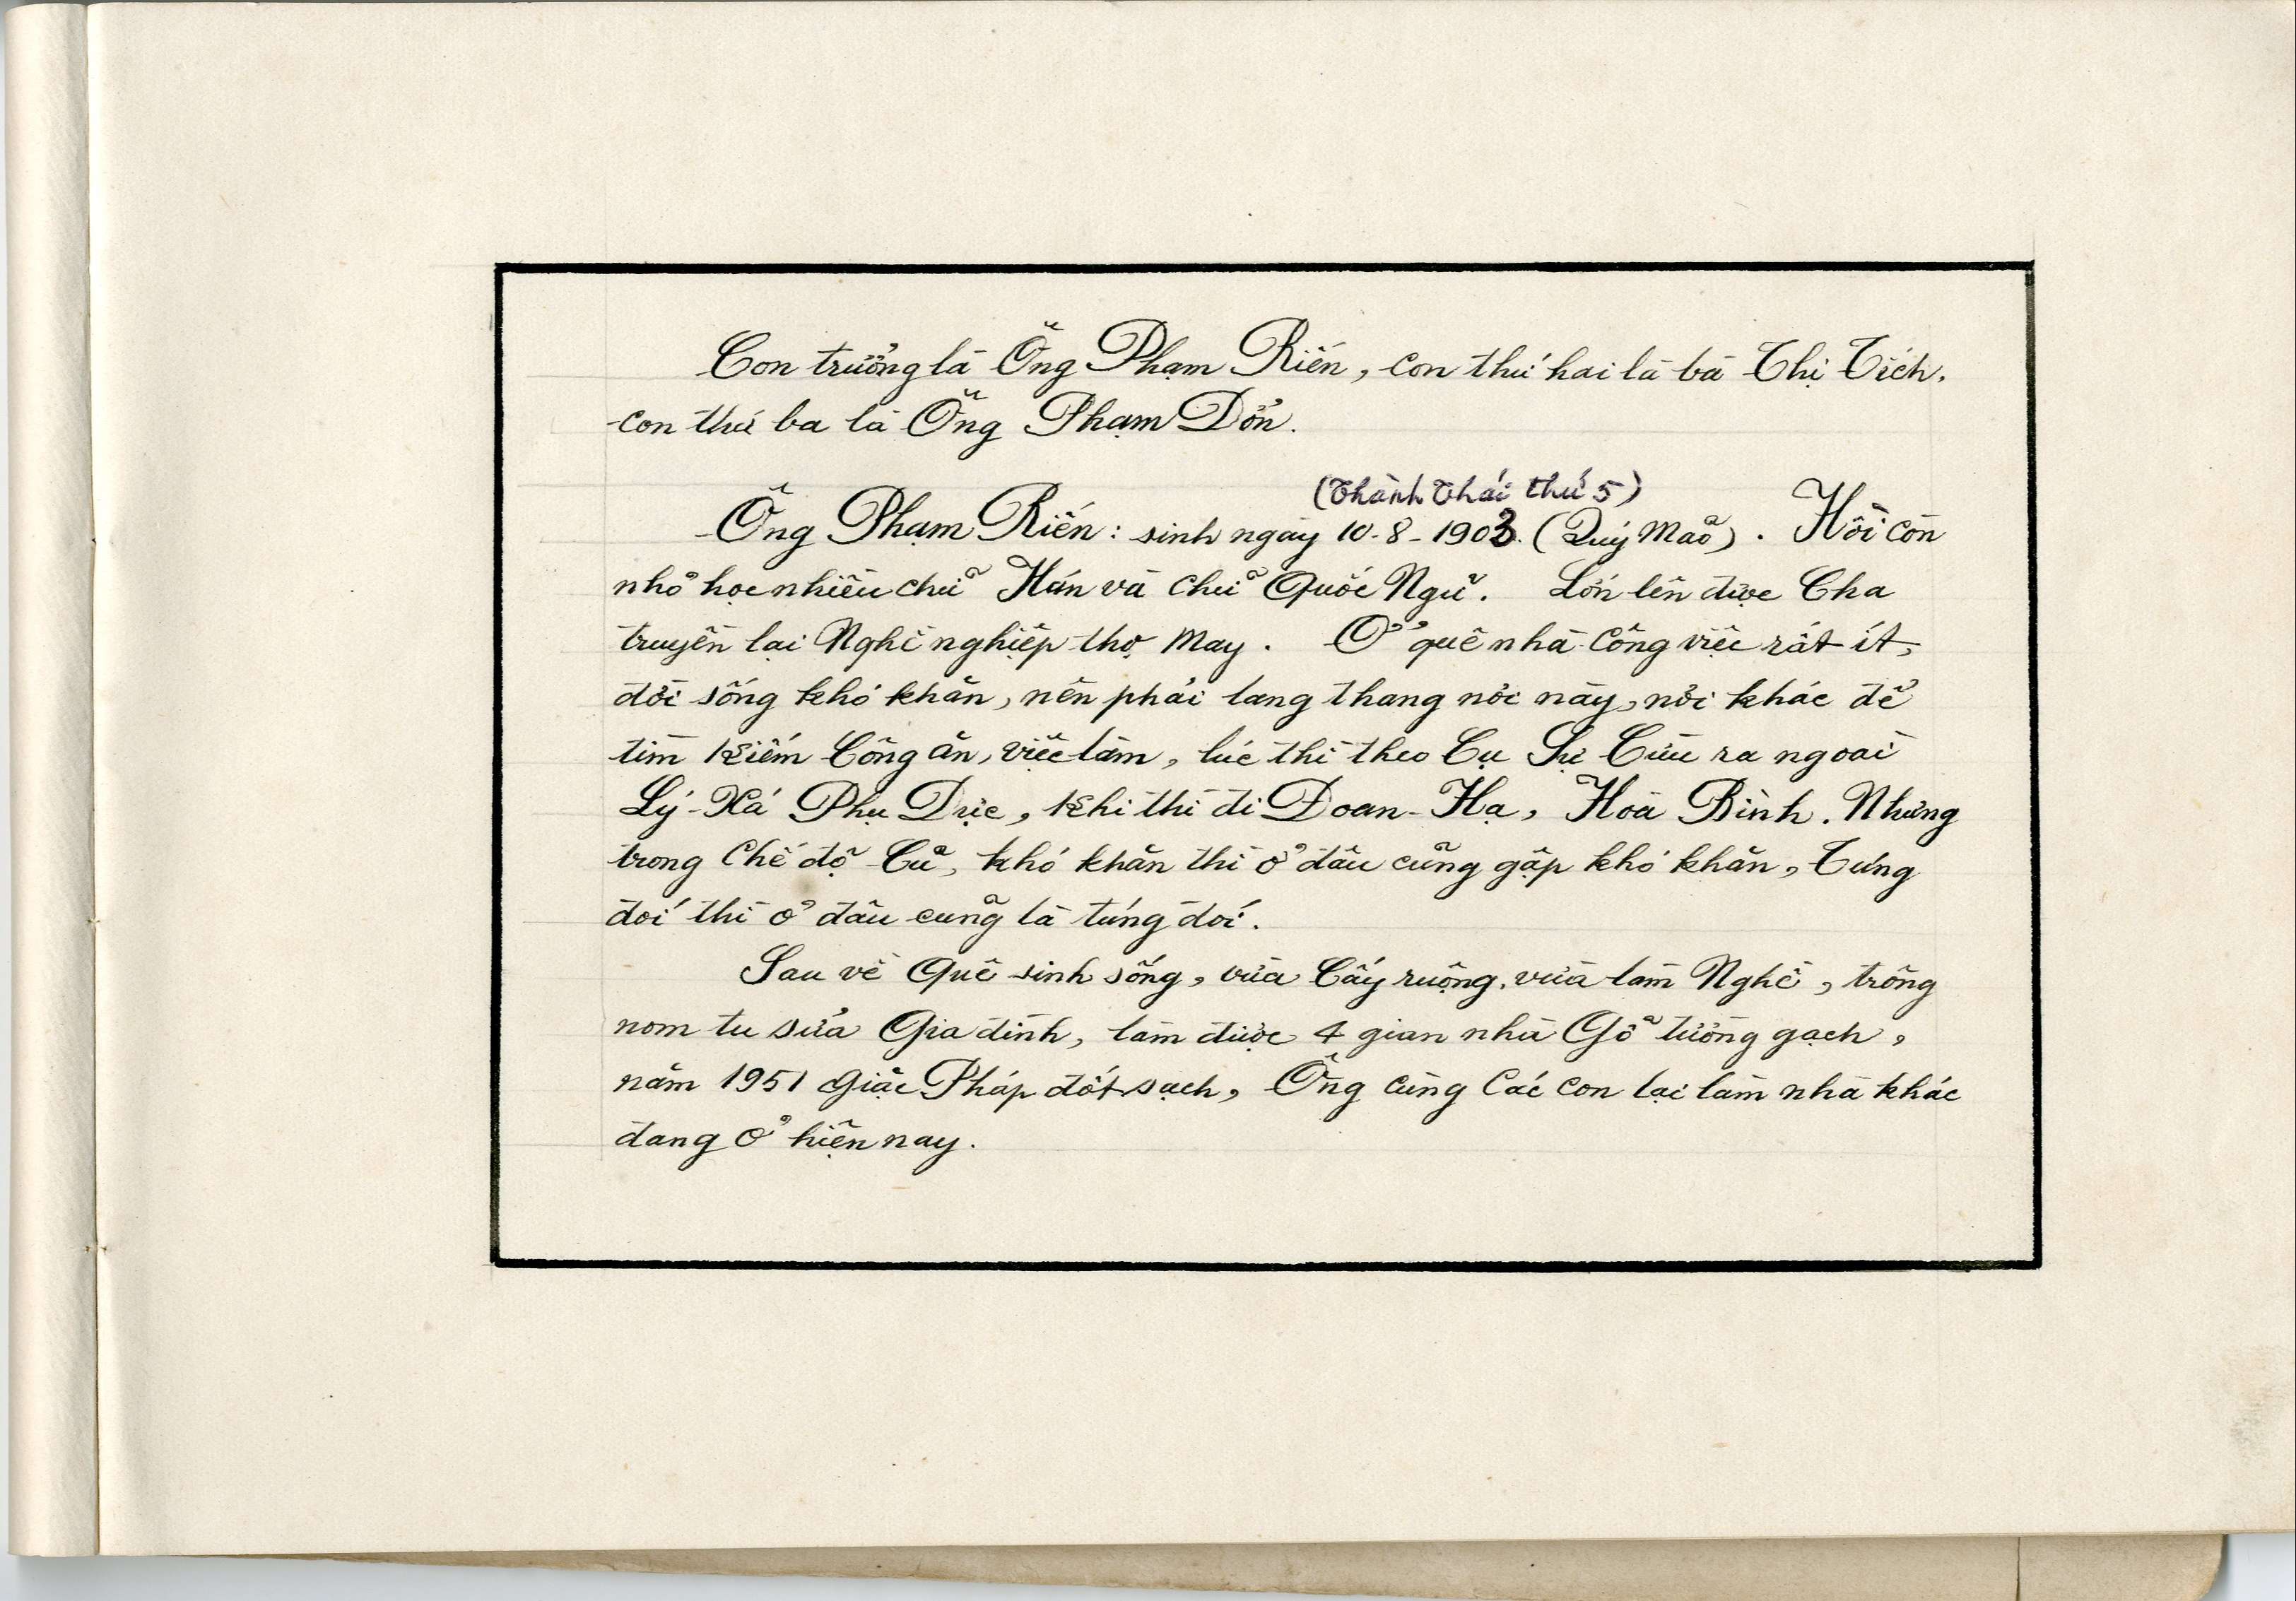 Con trưởng là Ông Phạm Riến, con thứ hai là bà Thị Tích.
con thứ ba là Ông Phạm Dổn.
(Thành Thái thứ 5)
Ông Phạm Riến: sinh ngày 10-8-1903. (Quý Mão). Hồi còn
nhỏ học nhiều chữ Hán và chữ Quốc Ngữ. Lớn lên được Cha
truyền lại Nghề nghiệp thợ May. Ở quê nhà Công việc rất ít,
đời sống khó khăn, nên phải lang thang nơi này, nơi khác để
tìm Kiếm Công ăn, việc làm, lúc thì theo Cụ Sự Cửu ra ngoài
Lý-Xá Phụ Dực, Khi thì đi Đoan-Hạ, Hoà Bình. Nhưng
trong Chế độ Cũ, khó khăn thì ở đâu cũng gặp khó khăn, Túng
đói thì ở đâu cũng là túng đói.
Sau về Quê sinh sống, vừa Cấy ruộng, vừa làm Nghề, trông
nom tu sửa Gia đình, làm được 4 gian nhà Gỗ tường gạch,
năm 1951 Giặc Pháp đốt sạch, Ông cùng Các con lại làm nhà khác
đang Ở hiện nay.